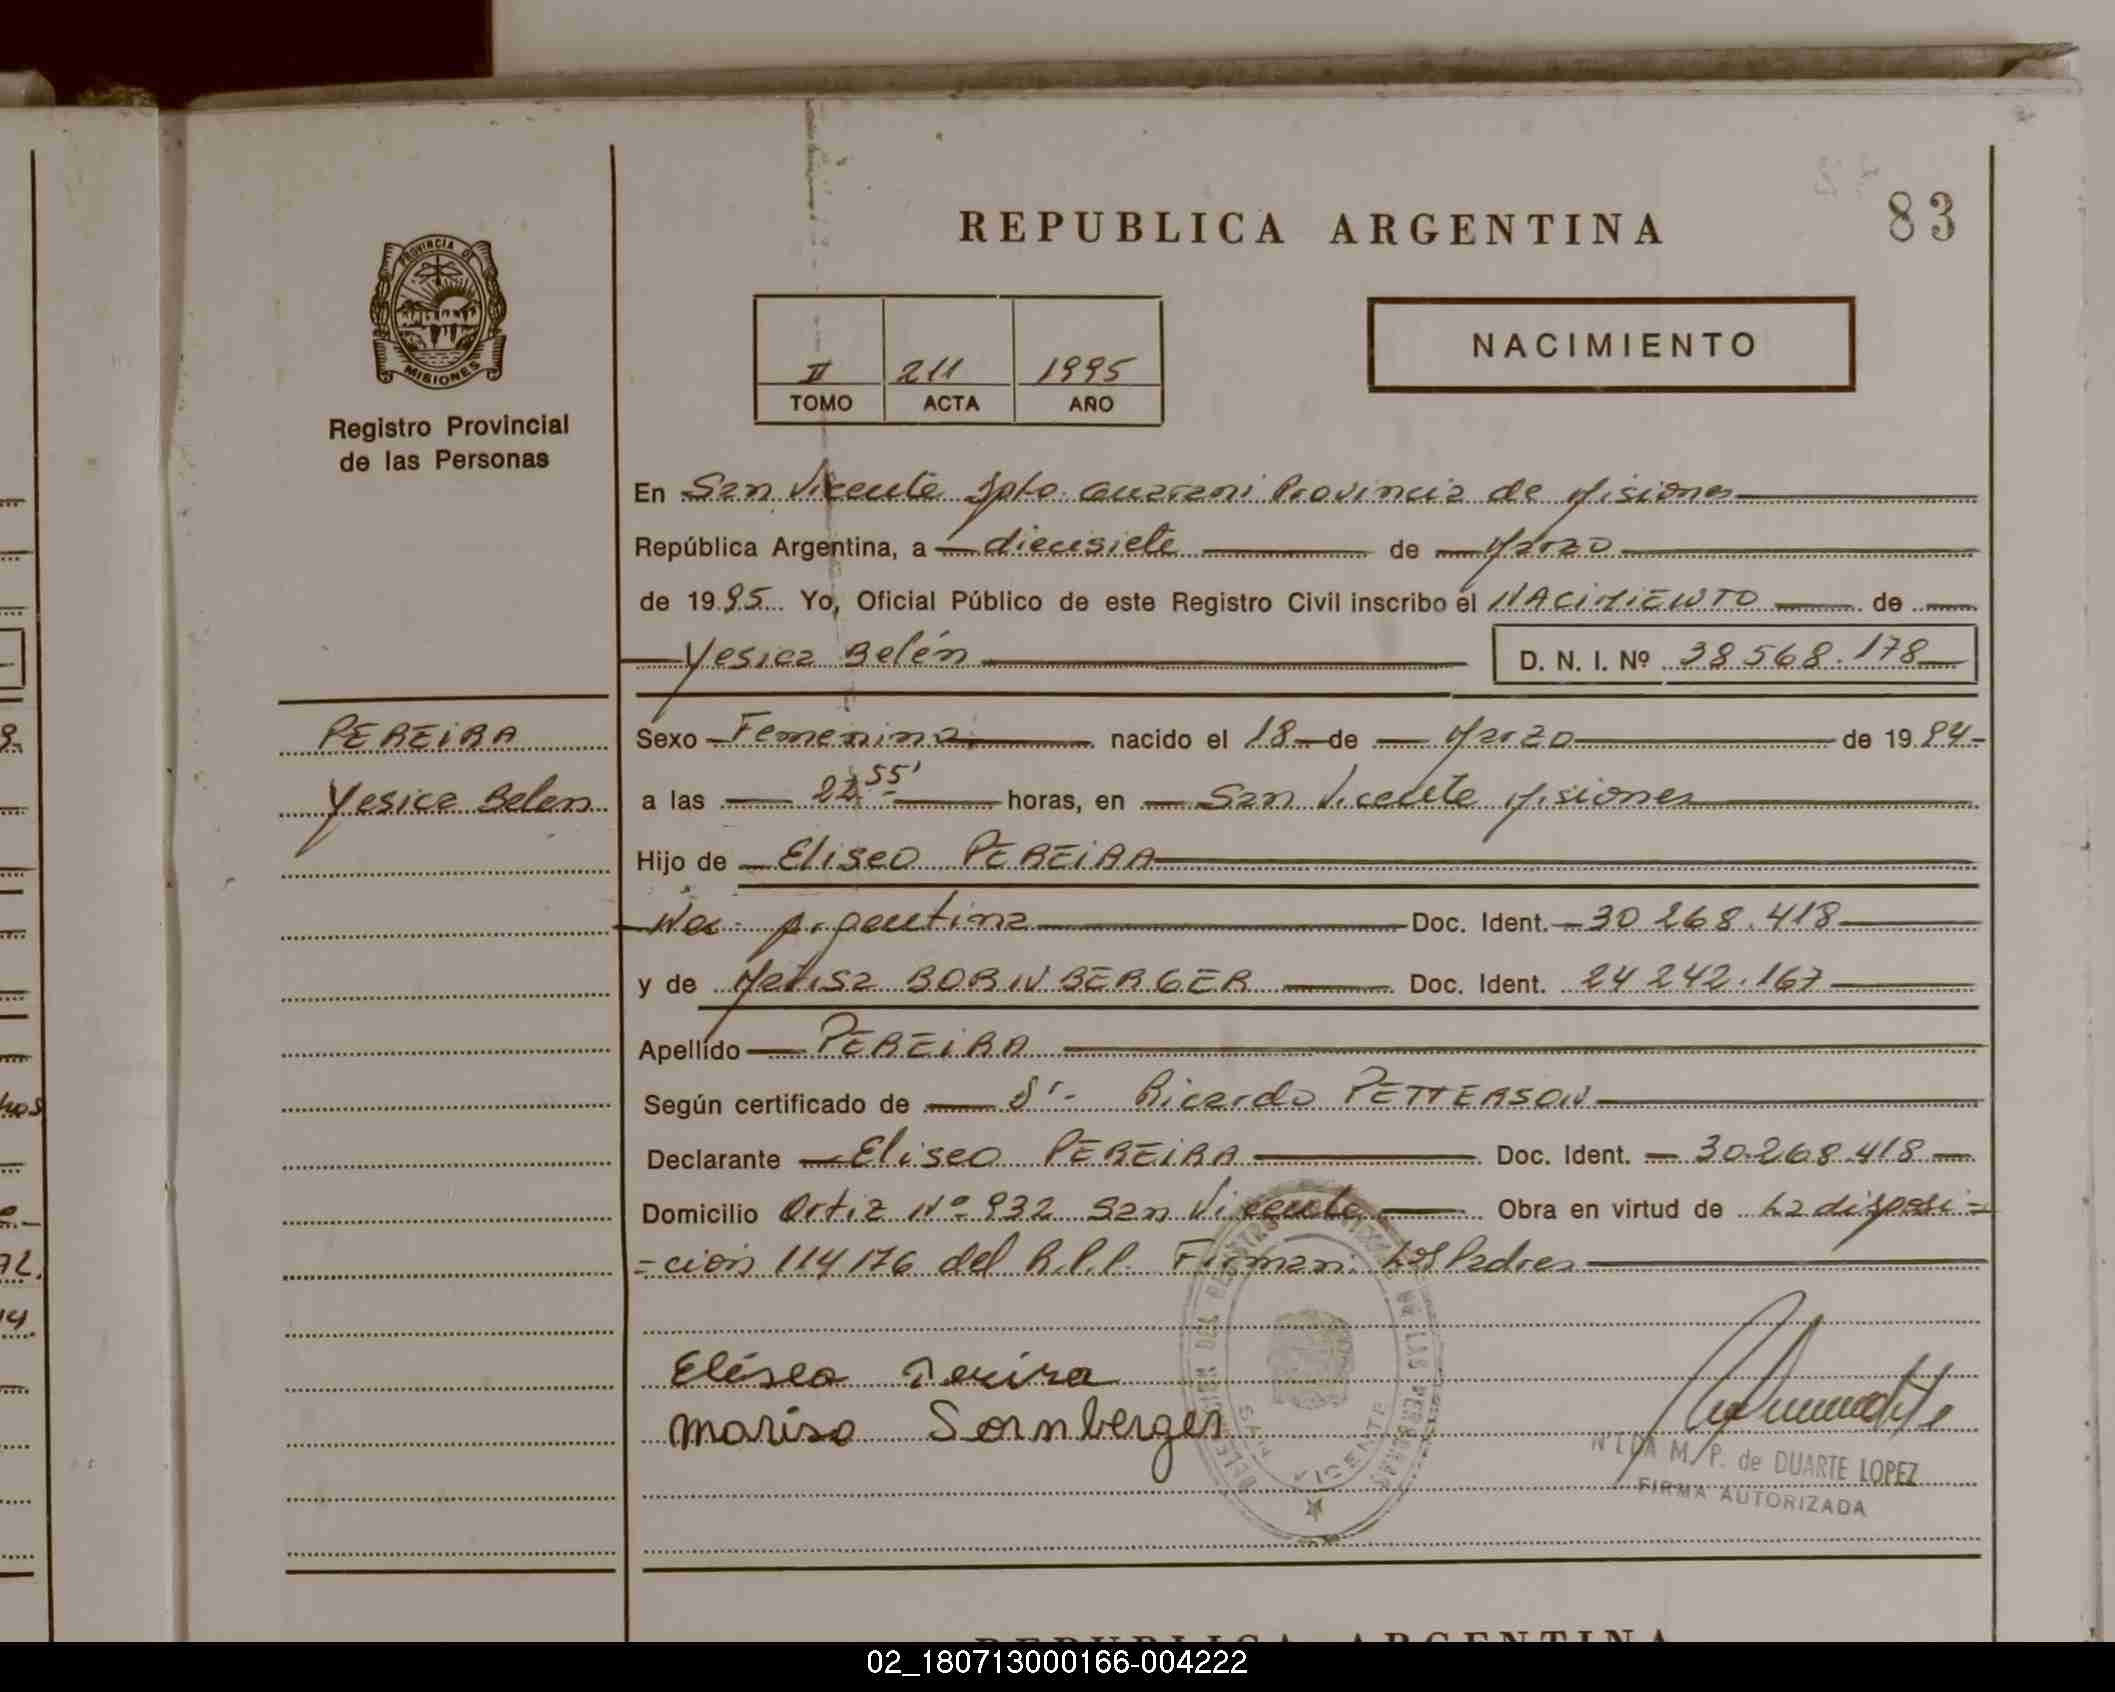 83
REPUBLICA ARGENTINA
PROVINCIA DE
MISIONES
Registro Provincial
de las Personas
NACIMIENTO
II 211 1995
TOMO ACTA AÑO
En San Vicente Dpto. Guarani Provincia de Misiones
República Argentina, a diecisiete de Marzo
de 1995 Yo, Oficial Público de este Registro Civil inscribo el NACIMIENTO de
Yesica Belén D. N. I. Nº 38.568.178
PEREIRA
Yesica Belen
Sexo Femenina nacido el 18 de Marzo de 1994
a las 22 55' horas, en San Vicente Misiones
Hijo de Eliseo PEREIRA
Nac. Argentina Doc. Ident. 30.268.418
y de Marisa BORNBERGER Doc. Ident. 24.242.167
Apellido PEREIRA
Según certificado de Dr. Ricardo PETTERSON
Declarante Eliseo PEREIRA Doc. Ident. 30.268.418
Domicilio Ortiz Nº 932 San Vicente Obra en virtud de La disposi=
=ción 114/76 del R.P.P. Firman: Los Padres
Eliseo Pereira
Marisa Sornberger
DELEGACION DEL REGISTRO PROVINCIAL DE LAS PERSONAS
SAN VICENTE
M. P. de DUARTE LOPEZ
FIRMA AUTORIZADA
REPUBLICA ARGENTINA
02_180713000166-004222